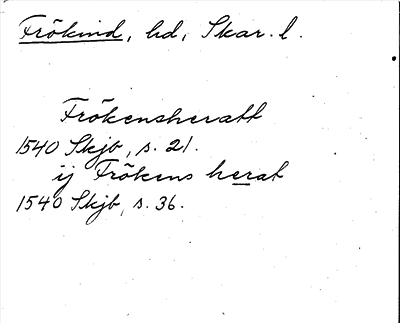 Frökind, hd, Skar. l.
Frökensheratt
1540 Skjb, s. 21.
ij Frökens herat
1540 Skjb, s. 36.